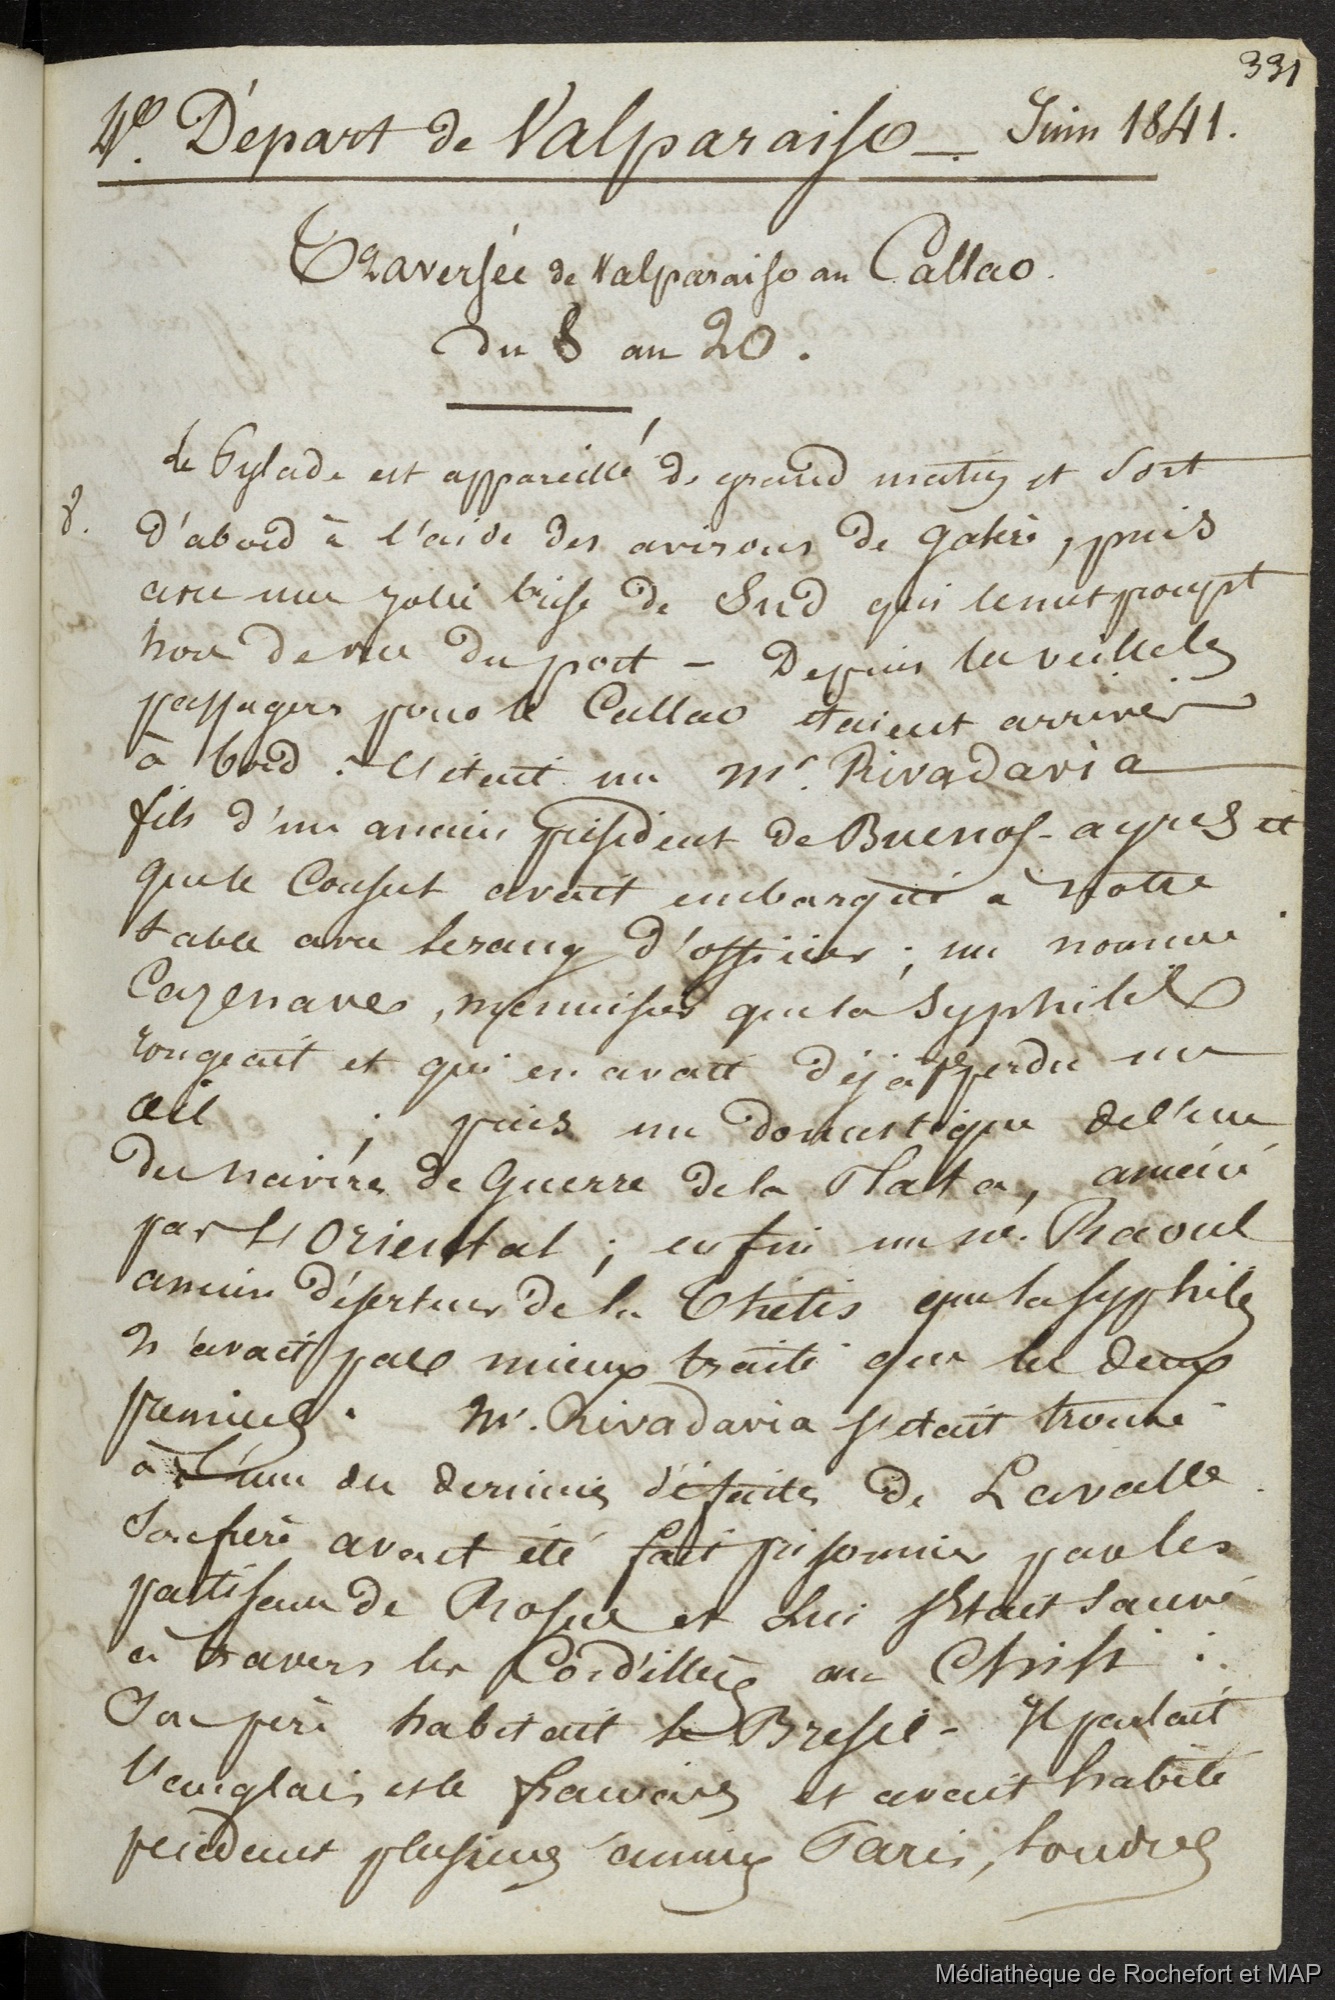 331
4º. Départ de Valparaiso — Juin 1841.
Traversée de Valparaiso au Callao.
du 8 au 20.
Le Pylade est appareillé de grand matin et sort
8.
d'abord à l'aide des avirons de galère, puis
avec une jolie brise de Sud qui le met prompt
hors de vue du port — Depuis la veille les
passagers pour le Callao étaient arrivés
à bord : C'était un Mr. Rivadavia
fils d'un ancien président de Buenos-ayres et
que le Consul avait embarqué à notre
table avec le rang d'officier ; un nommé
Cazenave, menuisier que la syphilis
rongeait et qui en avait déjà perdu un
œil ; puis un domestique de l'un
des navires de Guerre de la Plata, amené
par l'Oriental ; enfin un né. Raoul
ancien déserteur de la Thétis que la syphilis
n'avait pas mieux traité que les deux
premiers. Mr. Rivadavia s'était trouvé
à l'une des dernières défaites de Lavalle
Son frère avait été fait prisonnier par les
partisans de Rosas et lui s'était sauvé
à travers les Cordillères au Chili :
Son père habitait le Brésil - Il parlait
l'anglais et le français et avait habité
pendant plusieurs années Paris, Londres
Médiathèque de Rochefort et MAP